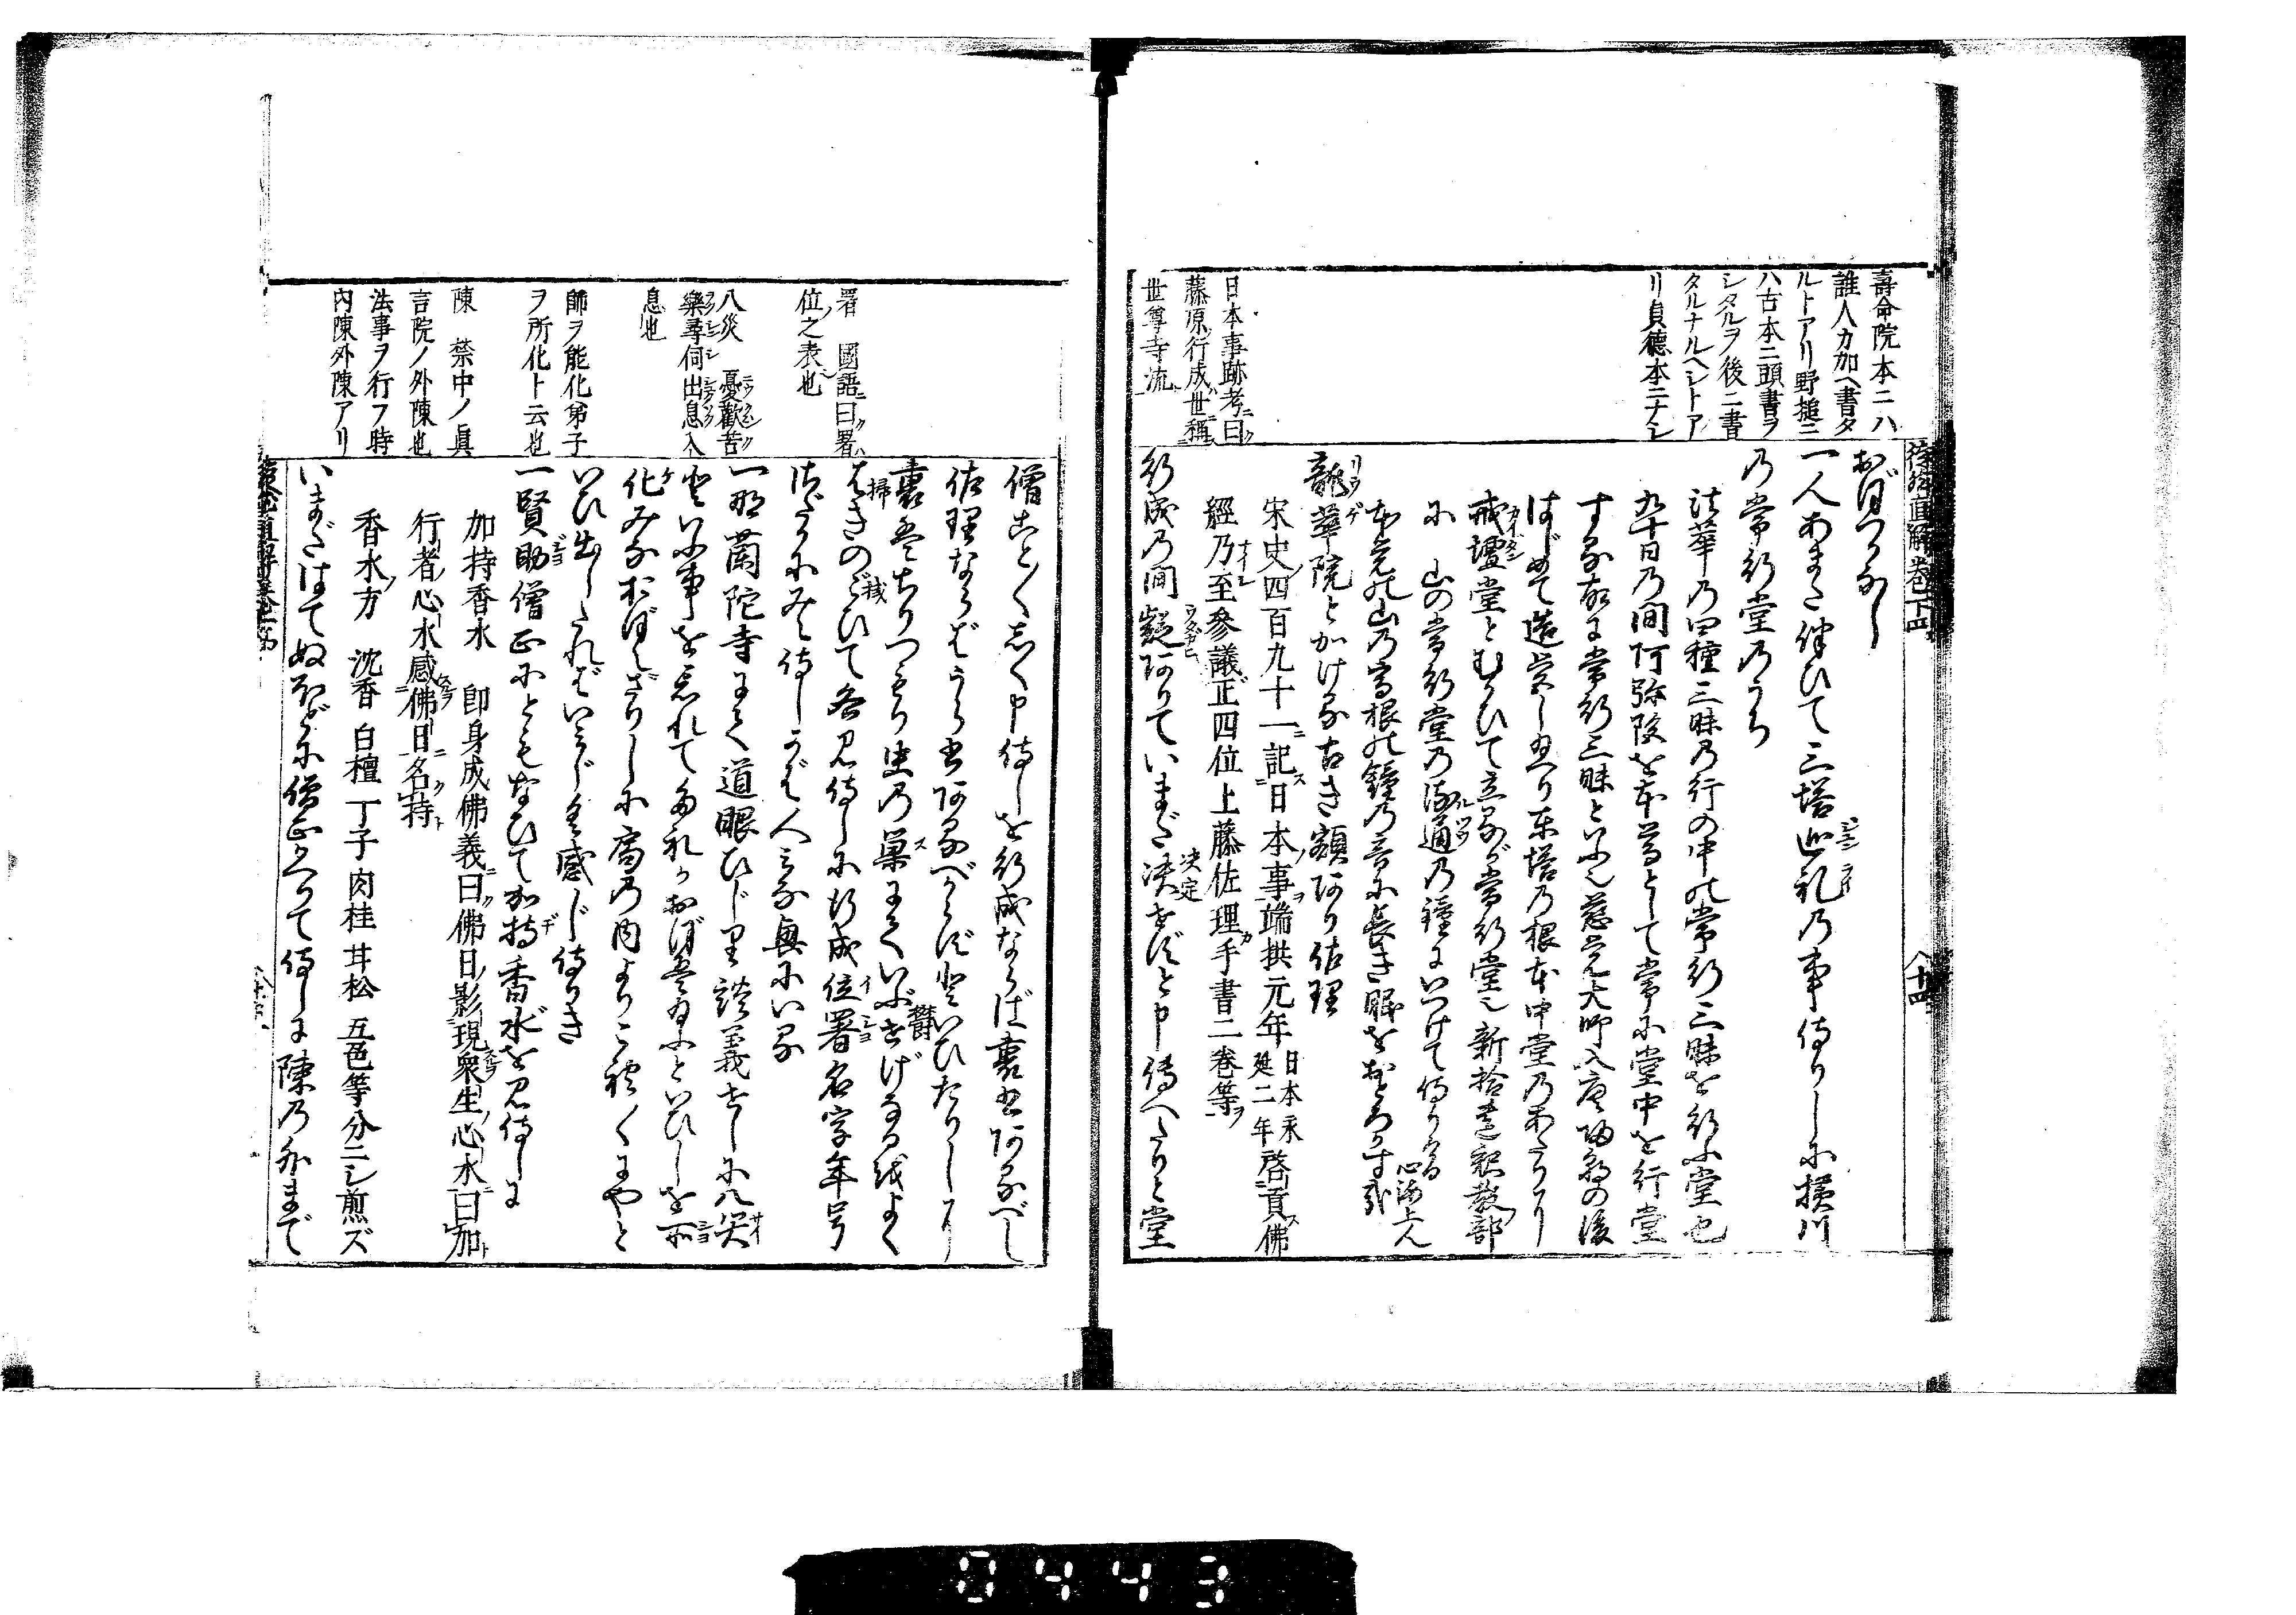 壽命院本ニハ
誰人カ加ヘ書タ
ルトアリ野槌ニ
ハ古本ニ頭書ヲ
シタルヲ後ニ書
タルナルヘシトア
リ貞德本ニナシ
日本事跡考ニ曰ク
藤原ノ行成世ニ稱ス
世尊寺流
徒然直解卷下四
十四
おぼつかなし
一人あまた伴ひて三塔巡礼の事侍りしに横川
の常行堂のうち
法華の四種三昧の行の中の常行三昧を行ふ堂也
九十日の間阿弥陀を本尊として常に堂中を行堂
する故に常行三昧といふ也慈覚大師入唐帰朝の後
はじめて造営し給へり東塔の根本中堂のあたり
戒壇堂とむかひて立るが常行堂也新拾遺釈教部
に 山の常行堂の
の鐘の音に長き眠をおどろかす
龍華院とかける古き額あり佐理
宋史ノ四百九十一ニ記ス日本ノ事ヲ端拱元年日本永延二年啓貢ス佛
經乃至參議正四位上藤佐理カ手書二卷等ヲ
行成の間疑ありていまだ決せずと申傳へたりと堂
決定
署 國語ニ曰ク署ハ
位ノ之表也
八災 憂歡苦
樂尋伺出息入
息也
師ヲ能化弟子
ヲ所化ト云也
陳 禁中ノ眞
言院ノ外陳也
法事ヲ行フ時
内陳外陳アリ
僧こと〳〵しく申侍しを行成ならば裏書あるべし
佐理ならばうら書あるべからずといひたりしに
裏は塵つもり虫の巣にていぶせげなるをよく
はきのごひて各見侍しに行成位署名字年号
さだかにみえ侍しかば人みな興にいる
一那蘭陀寺にて道眼ひじり談義せしに八災
といふ事を忘れてこれやおぼえ給ふといひしを所
化みなおぼえざりしに局の内よりこれ〳〵にやと
いひ出したればいみじく感じ侍りき
一賢助僧正にともなひて加持香水を見侍しに
加持香水 即身成佛義ニ曰ク佛日ノ影現衆生ノ心水ニ曰加ト
行者ノ心水感佛日ヲ名持ト
香水ノ方 沈香 白檀 丁子 肉桂 甘松 五色等分ニシ煎ズ
いまだはてぬほどに僧正かへりて侍しに陳の外まで
0443